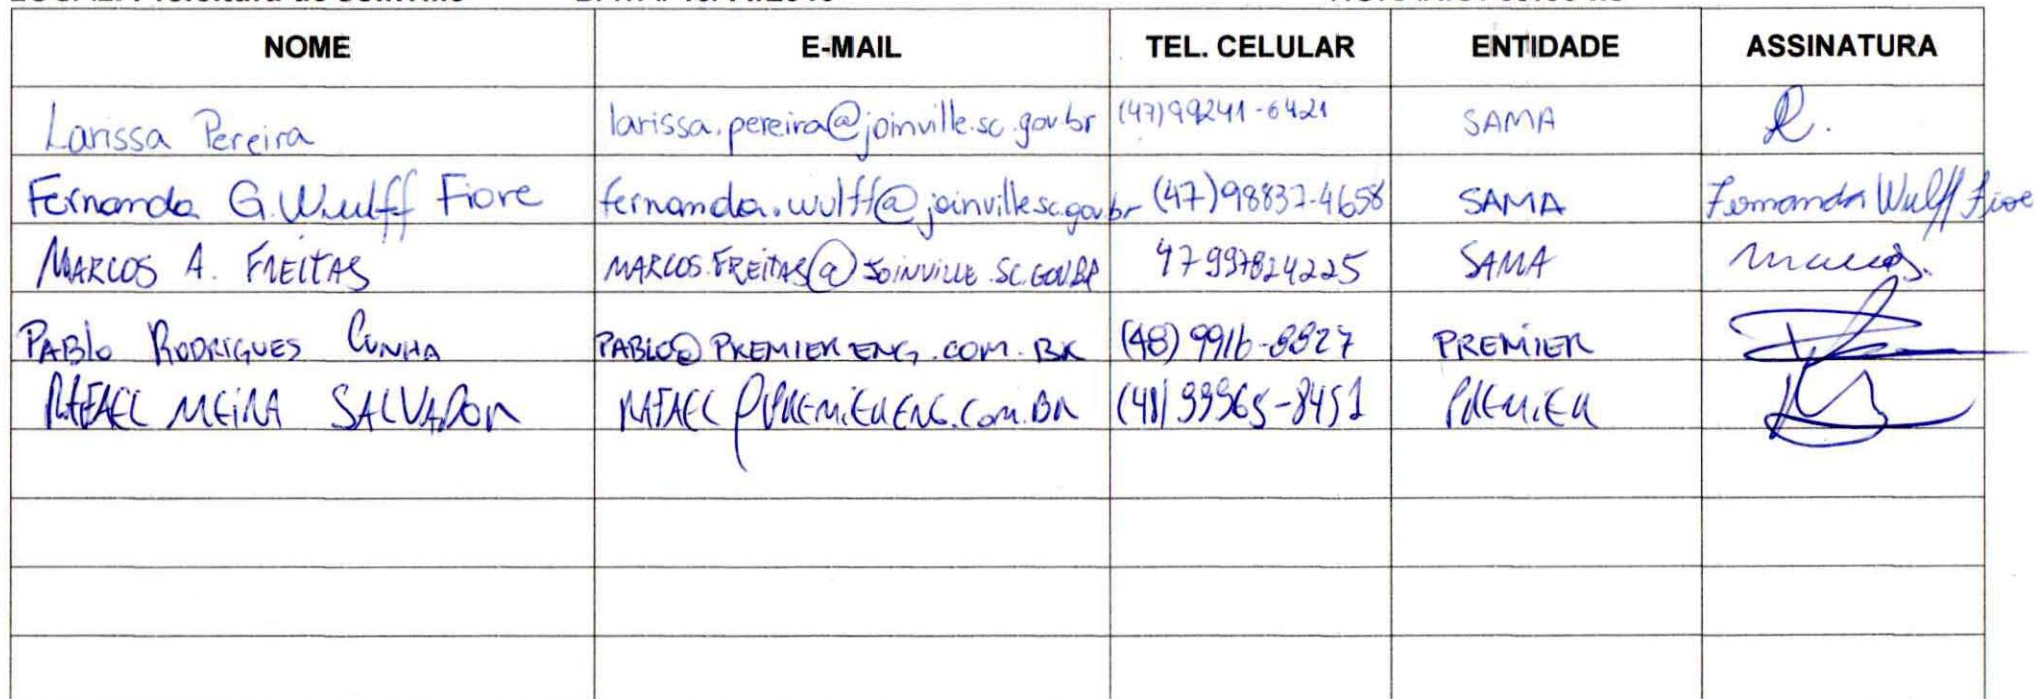 NOME E-MAIL TEL. CELULAR ENTIDADE ASSINATURA
Larissa Pereira larissa.pereira@joinville.sc.gov.br (47)99241-6421 SAMA R.
Fernanda G. Wulff Fiore fernanda.wulff@joinville.sc.gov.br (47)98837-4658 SAMA Fernanda Wulff Fiore
MARCOS A. FREITAS MARCOS.FREITAS@JOINVILLE.SC.GOV.BR 47 997824225 SAMA Marcos.
PABlo RODRIGUES CUNHA PABLO@PREMIERENG.COM.BR (48) 9916-8827 PREMIER
RAFAEL MEIRA SALVADOR RAFAEL@PREMIERENG.COM.BR (48) 99965-8451 PREMIER